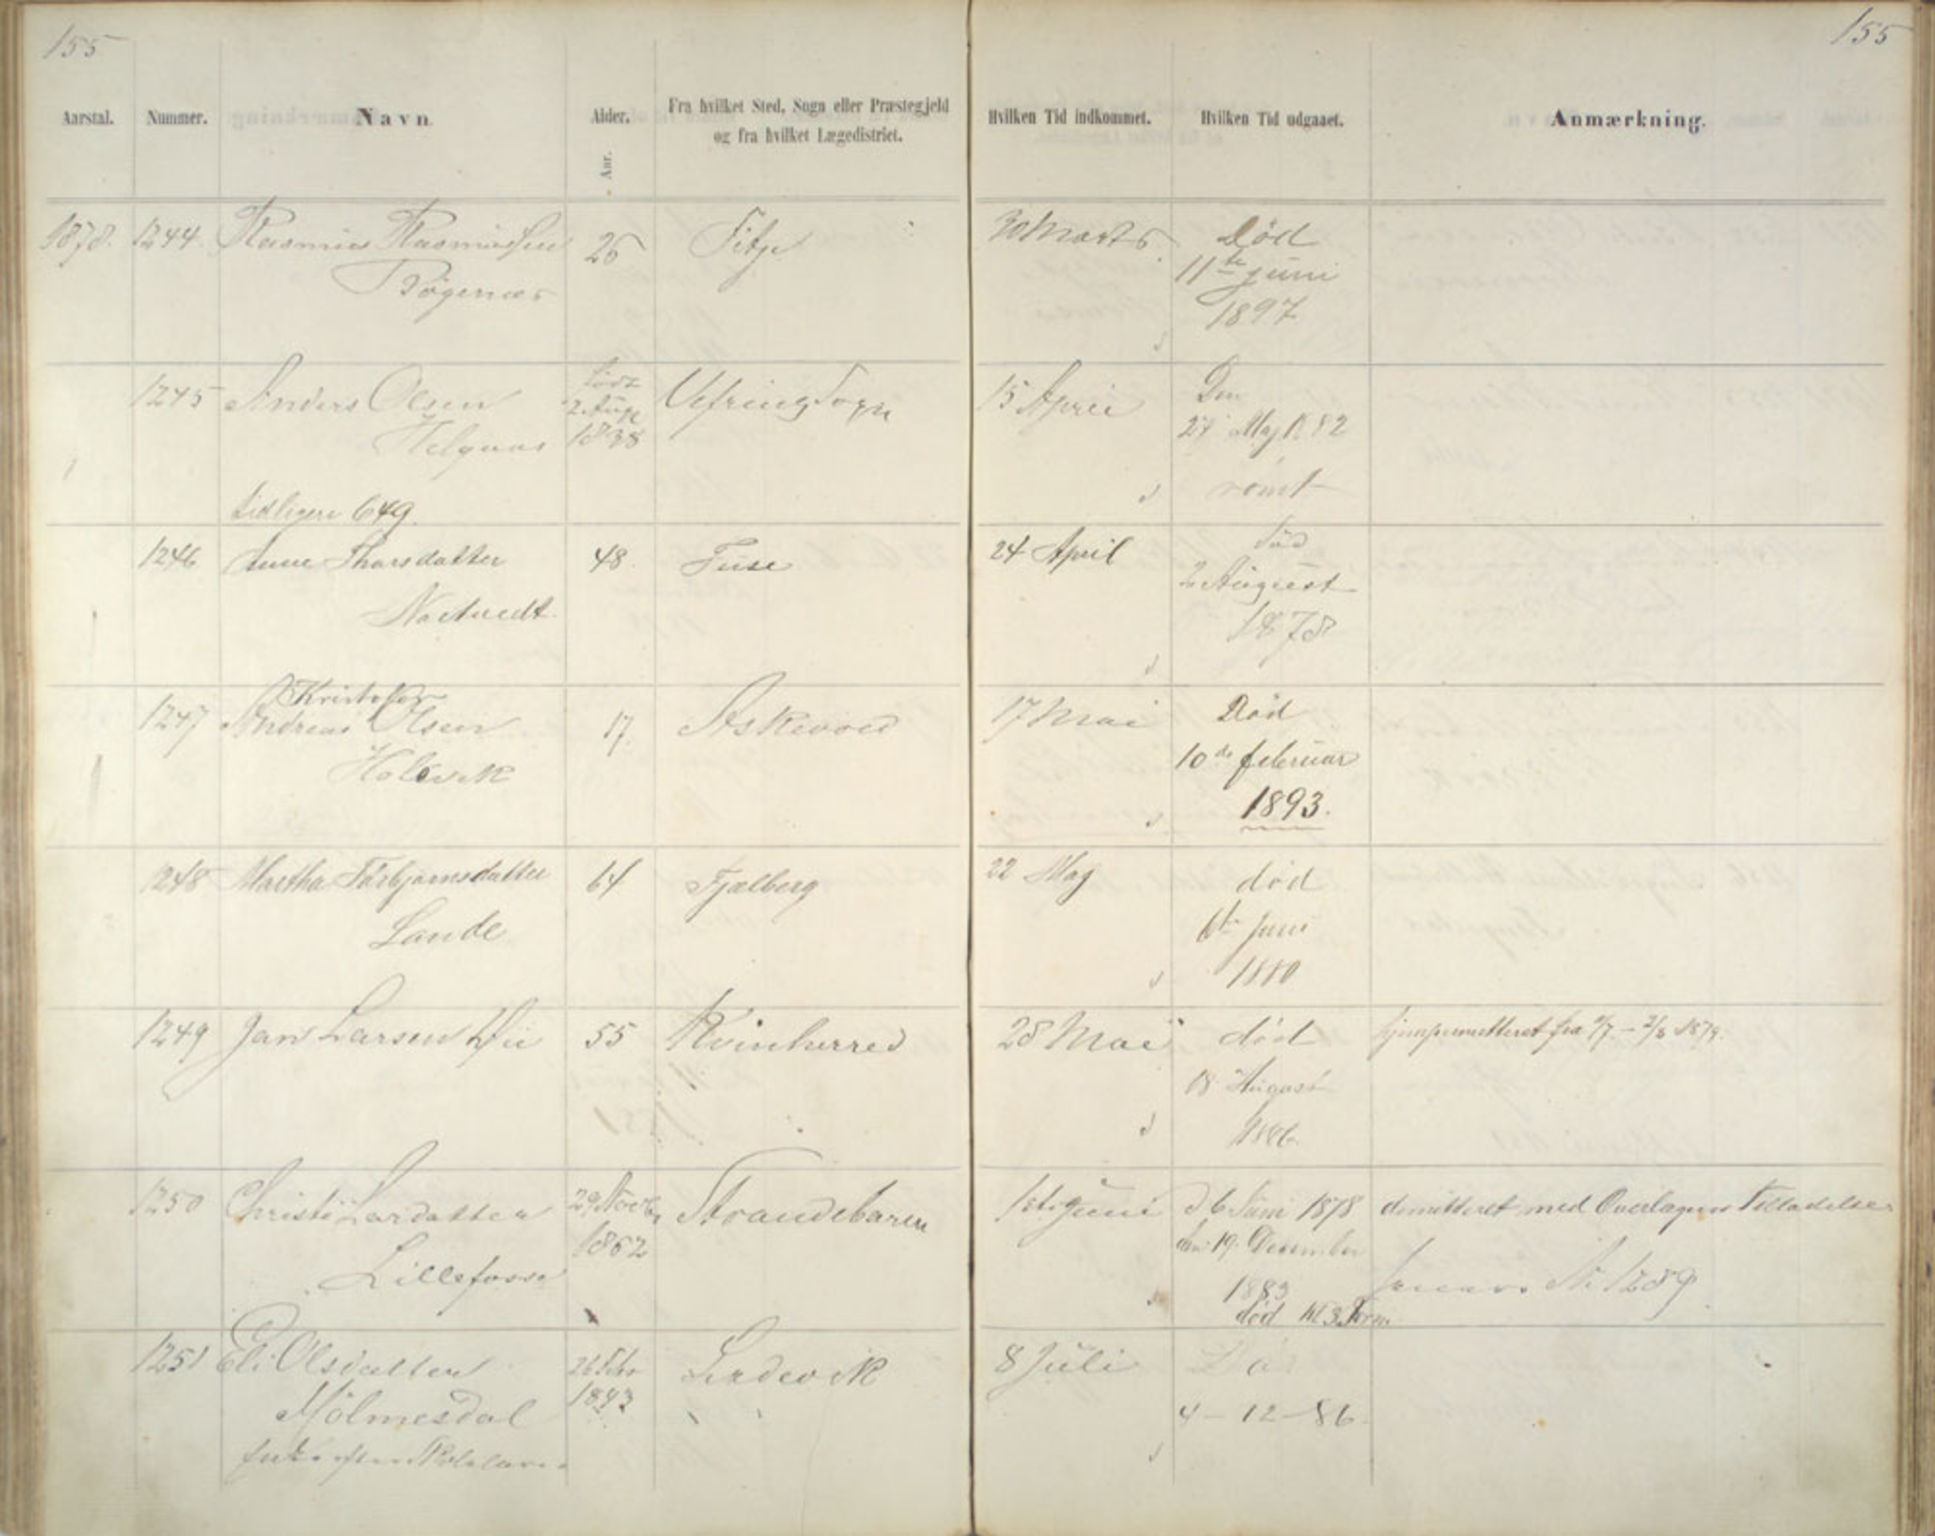 155
155
Aarstal. Nummer. Navn Alder. Aar. Fra hvilket Sted, Sogn eller Præstegjeld
og fra hvilket Lægedistrict.
Hvilken Tid indkommet. Hvilken Tid udgaaet. Anmærkning.
1878. 1244. Rasmus Rasmussen 26 Fitje 30 Marts Død
Bögenæs 11te juni
1897
1245 Anders Olsen född Vefring Sogn 15 April Den
2 Aug 27 Maj 1882
Helgaas 1838 römt
tidligere 649.
1246 Anne Thorsdatter 48. Fuse 24 April Död
Nætvedt 2 August
1878
Kristofer
1247 Andreas Olsen 17. Askevold 17 Mai Død
Holevik 10de februar
1893.
1248 Martha Torbjørnsdatter 64 Fjælberg 22 Maj død
Lande 6te Juni
1880
1249 Jan Larsen 55 Kvinherred 28 Mai død fra 2/7 – 2/8 1879.
18 August
1886.
1250 Christi Larsdatter 29 Novbr Strandebarm 1ste Juni d 6 Juni 1878 dimitteret med Overlægens Tilladelse
1862 den 19. December
Lillefosse 1883 No 1289
død Kl 3 Form
1251 Eli Olsdatter 26 Febr 8 Juli Död
Mölmesdal 1843 4–12–86.